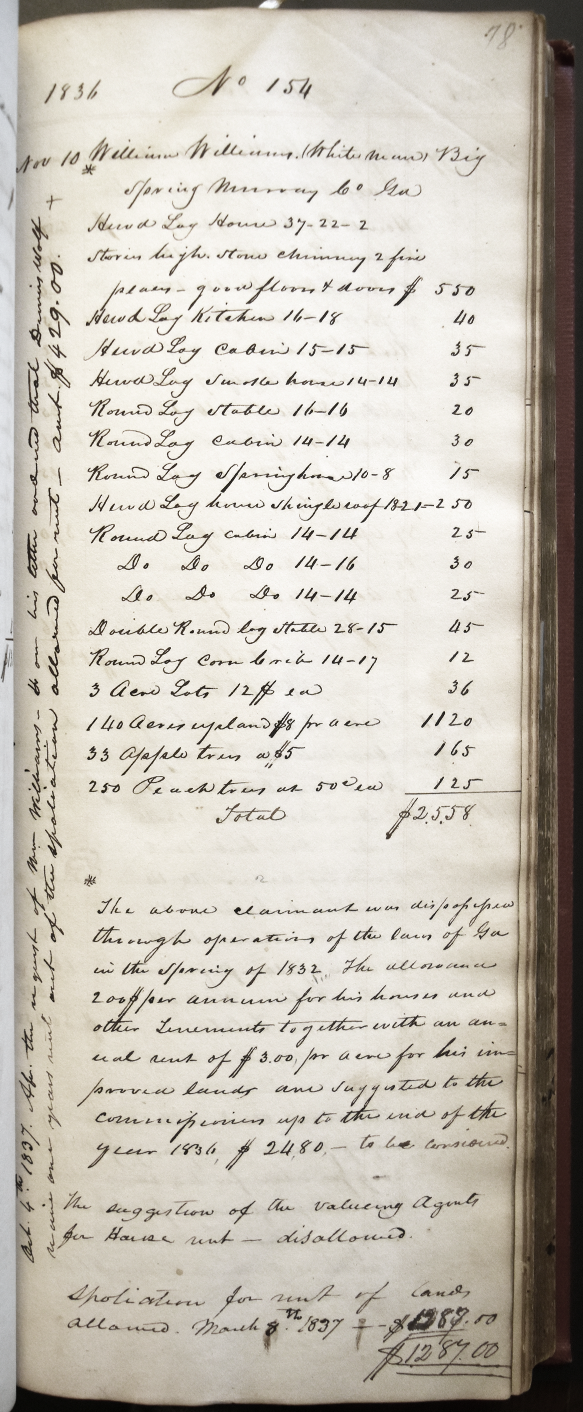 78
1836 No 154
Nov 10 William Williams. (White man) Big
*
Spring Murray Co Ga
Hewd Log House 37-22-2
stories high. stone chimney 2 fire
places - good floors & doors $ 550
Hewd Log Kitchen 16-18 40
Hewd Log cabin 15-15 35
Hewd Log smoke house 14-14 35
Round Log stable 16-16 20
Round Log cabin 14-14 30
Round Log Springhouse 10-8 15
Hewd Log house shingle roof 18-21- 250
Round Log cabin 14-14 25
Do Do Do 14-16 30
Do Do Do 14-14 25
Double Round log stable 28-15 45
Round Log corn Crib 14-17 12
3 Acre Lots 12$ ea 36
140 Acres upland $8 pr acre 1120
33 Apple trees a $5 165
250 Peach trees at 50c ea 125
Total $2558
*
The above claimant was dispossessed
through operations of the laws of Ga
in the Spring of 1832. The allowance
200$ per annum for his houses and
other Tenements together with an an=
ual rent of $3.00, pr acre for his im=
proved lands are suggested to the
commissioners up to the end of the
year 1836, $ 2480,- to be considered.
The suggestion of the valueing Agents
for House rent - disallowed.
Spoliation for rent of lands
allowed. March 8th 1837 - - $1287.00
$1287.00
4th 1837. At the request of Mr Williams - from his letter ordered that Dennis Wolf +
have one years rent out of the spoliation allowed for rent - amt. $429.00.